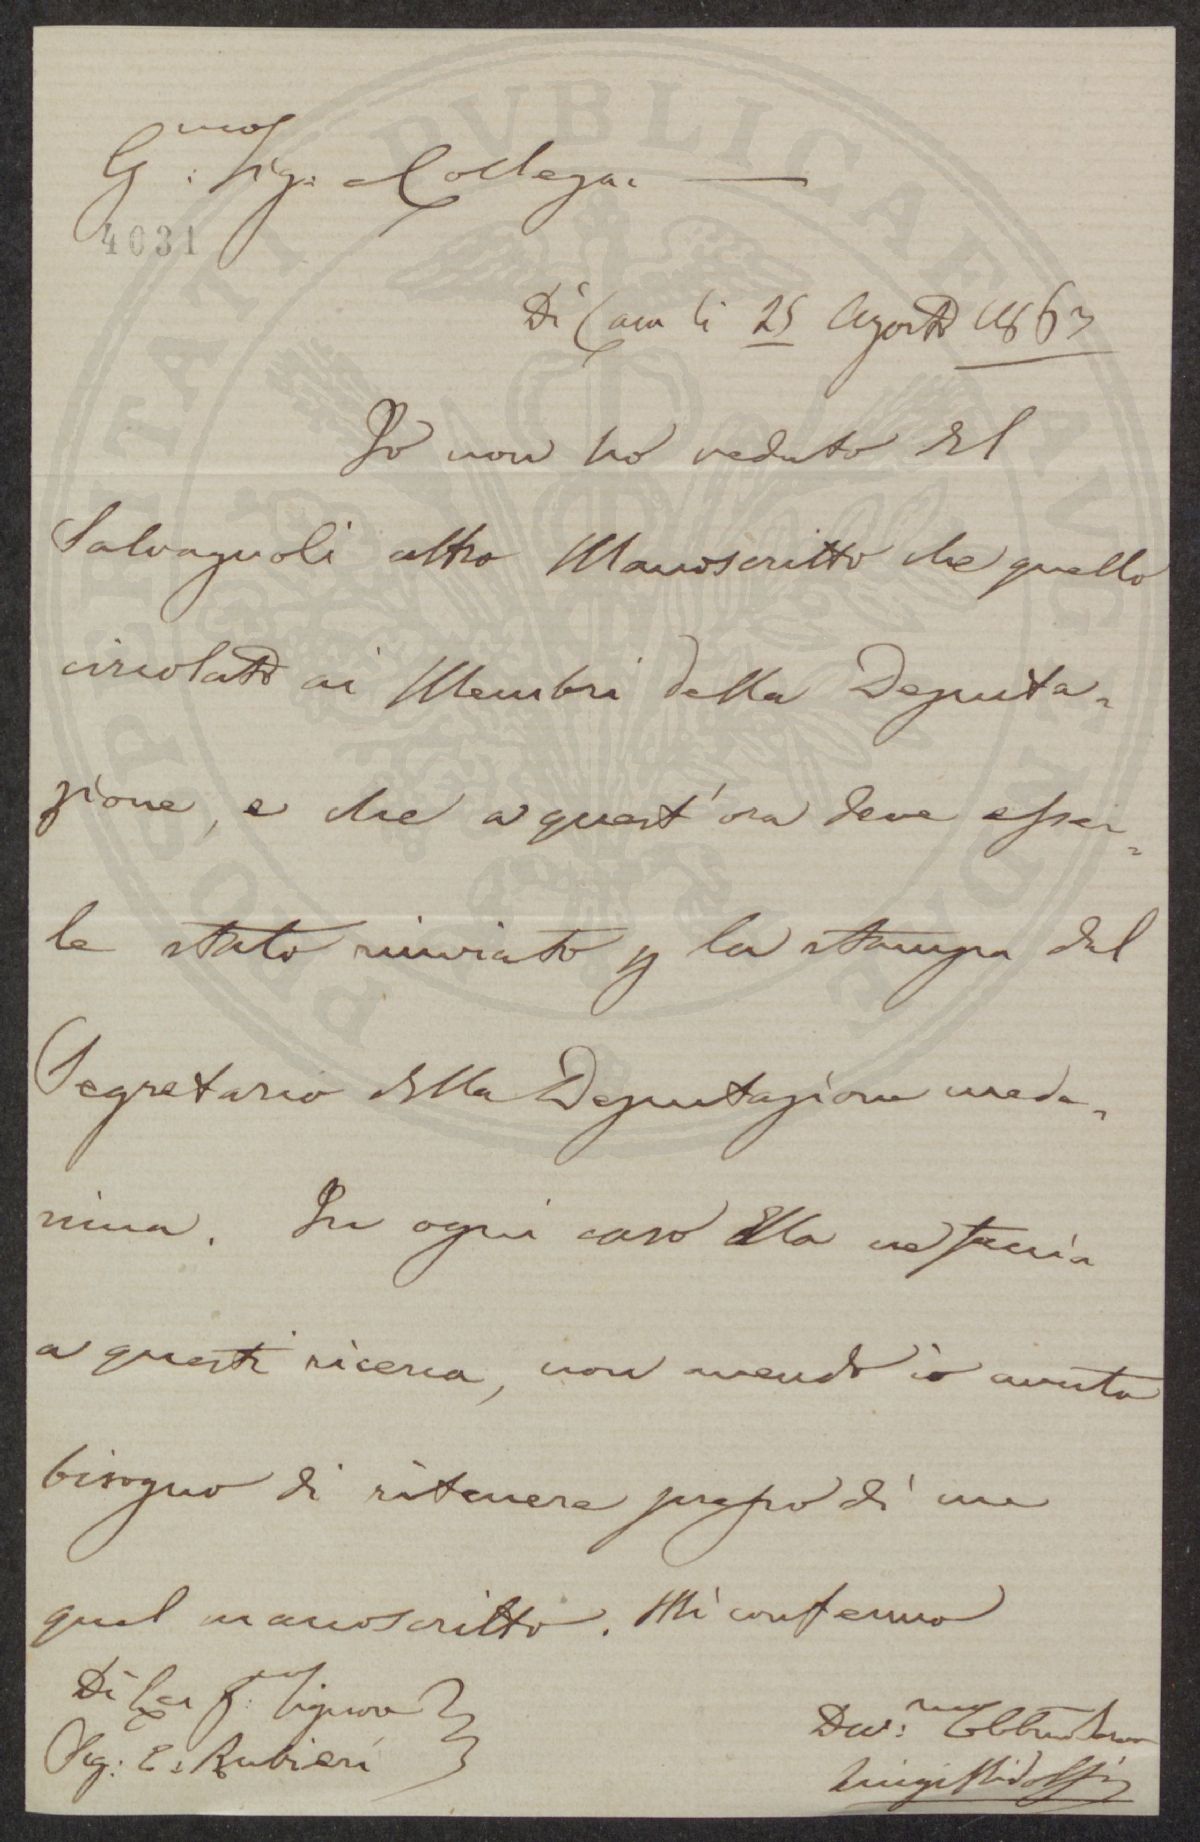 G.mo Sig: Collega.
4031
Di Casa li 25 Agosto 1863
Io non ho veduto del
Salvagnoli altro Manoscritto che quello
circolato ai Membri della Deputa=
zione, e che a quest'ora deve esser=
le stato rinviato p la stampa dal
Segretario della Deputazione mede=
sima. In ogni caso Ella ne faccia
a questi ricerca, non avendo io avuto
bisogno di ritenere presso di me
quel manoscritto. Mi confermo
Di Lei Signore
Sig: E: Rubieri
Dev:mo Obbmo
Luigi Ridolfi